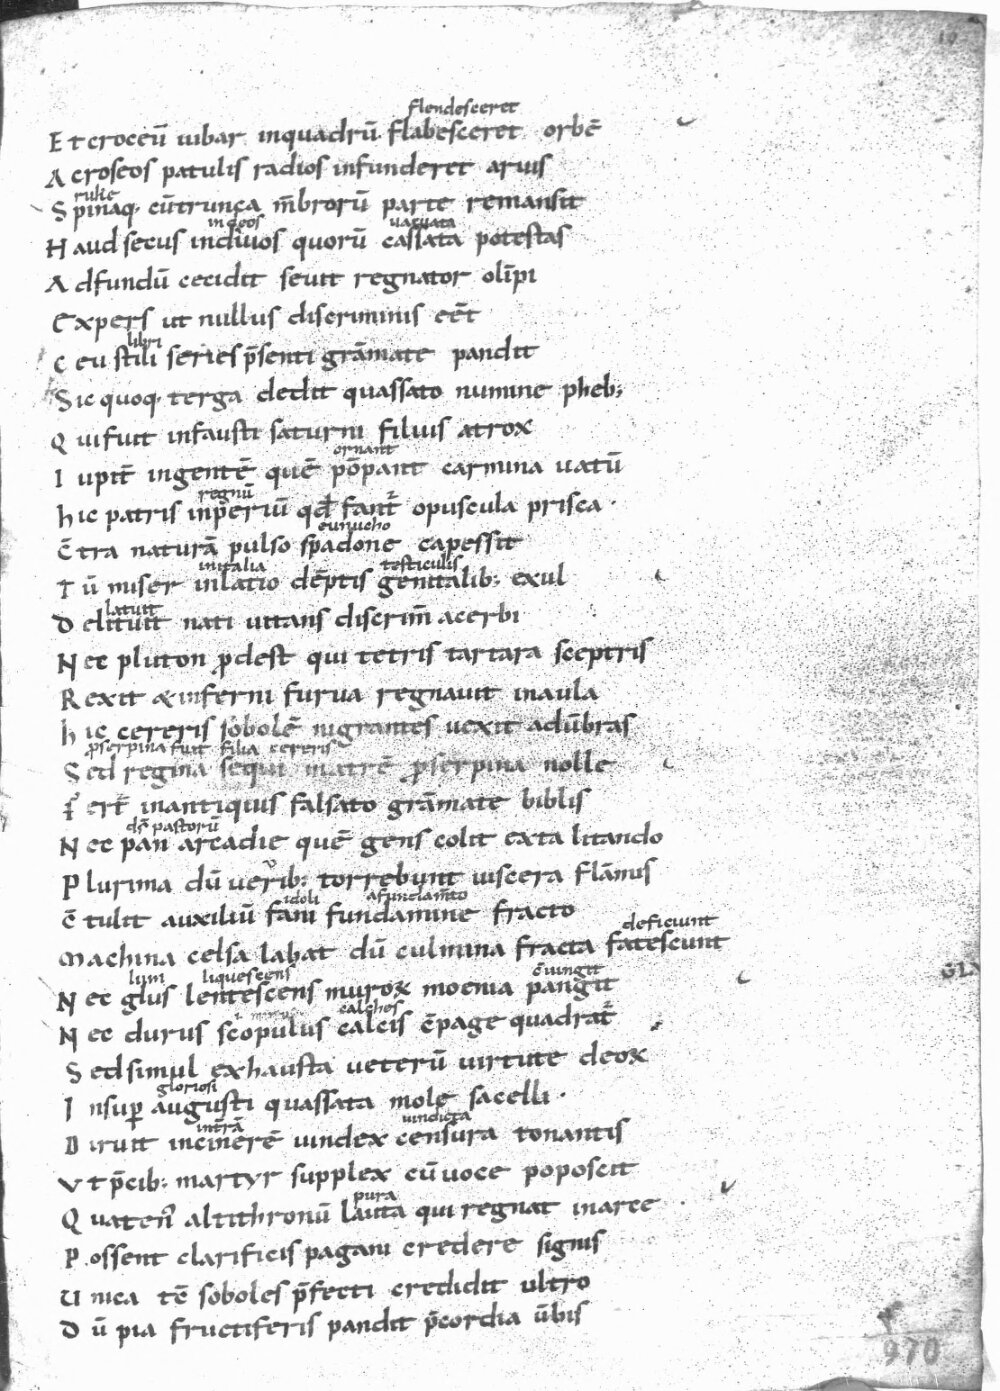 10
flendesceret
Et croceū iubar inquadrū flabesceret orbē
Acroseos patulis radios infunderet aruis
rulie
Spinaq; cū trunca m̄brorū parte remansit
in deos uacuata
Haud secus indiuos quorū cassata potestas
Adfundū cecidit seuit regnator olīpi
Expers ut nullus discriminis eēt
libri
Ceu stili series p̄senti grāmate pandit
Sic quoq; terga dedit quassato numine pheb;
Qui fuit infausti saturni filius atrox
ornant
Iupit̄ ingentē quē pōpant carmina uatū
regnū
hic patris inperiū qd̄ fant̄ opuscula prisca.
eunucho
C̄tra naturā pulso spadone capessit
initalia testiculis
Tū miser inlatio dēptis genitalib; exul
latuit
Delituit nati uitans discrim̄ acerbi
Nec pluton p̄dest qui tetris tartara sceptris
Rexit & inferni furua regnauit inaula
hic cereris sobolē nigrantes uexit adūbras
p̄serpina fuit filia cereris
Sed regina sequi matrē p̄serpina nolle
Fert̄ inantiquis falsato grāmate biblis
ds̄ pastorū
Nec pan arcadie quē gens colit exta litando
Plurima dū uerib; torrebunt uiscera flāmis
idoli afundam̄to
C̄tulit auxiliū fani fundamine fracto
deficiunt
Machina celsa labat dū culmina fracta fatescunt
lim liquescens c̄iungit
Nec glus lentescens muroꝝ moenia pangit
calches
Nec durus scopulus calcis c̄page quadrat̄
Sed simul exhausta ueterū uirtute deoꝝ
gloriosi
Insup̄ augusti quassata mole sacelli.
intrā uindicta
Diruit incinerē uindex censura tonantis
Ut p̄cib; martyr supplex cū uoce poposcit
pura
Quaten̄ altithronū lauta qui regnat inarce
Possent clarificis pagani credere signis
Unica tē soboles p̄fecti credidit ultro
Dū pia fructiferis pandit p̄cordia ūbis
970